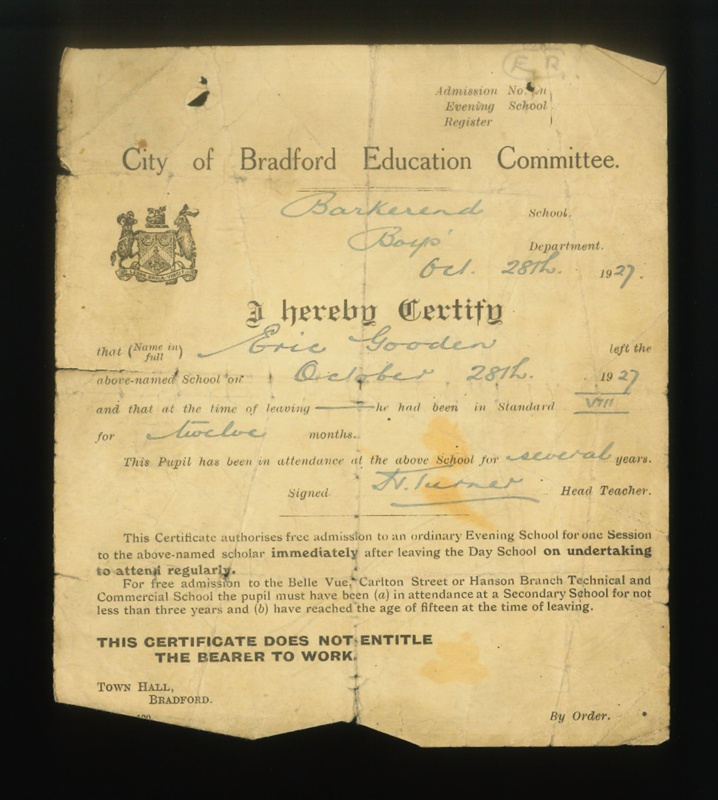 E.R.
Admission No. in
Evening School
Register
City of Bradford Education Committee.
Barkerend School.
Boys' Department.
Oct. 28th. 1927.
I hereby Certify
that (Name in full) Eric Gooden left the
above-named School on October 28th. 1927
and that at the time of leaving he had been in Standard VIII
for twelve months.
This Pupil has been in attendance at the above School for several years.
Signed H. Turner Head Teacher.
This Certificate authorises free admission to an ordinary Evening School for one Session
to the above-named scholar immediately after leaving the Day School on undertaking
to attend regularly.
For free admission to the Belle Vue, Carlton Street or Hanson Branch Technical and
Commercial School the pupil must have been (a) in attendance at a Secondary School for not
less than three years and (b) have reached the age of fifteen at the time of leaving.
THIS CERTIFICATE DOES NOT ENTITLE
THE BEARER TO WORK.
TOWN HALL,
BRADFORD.
By Order.